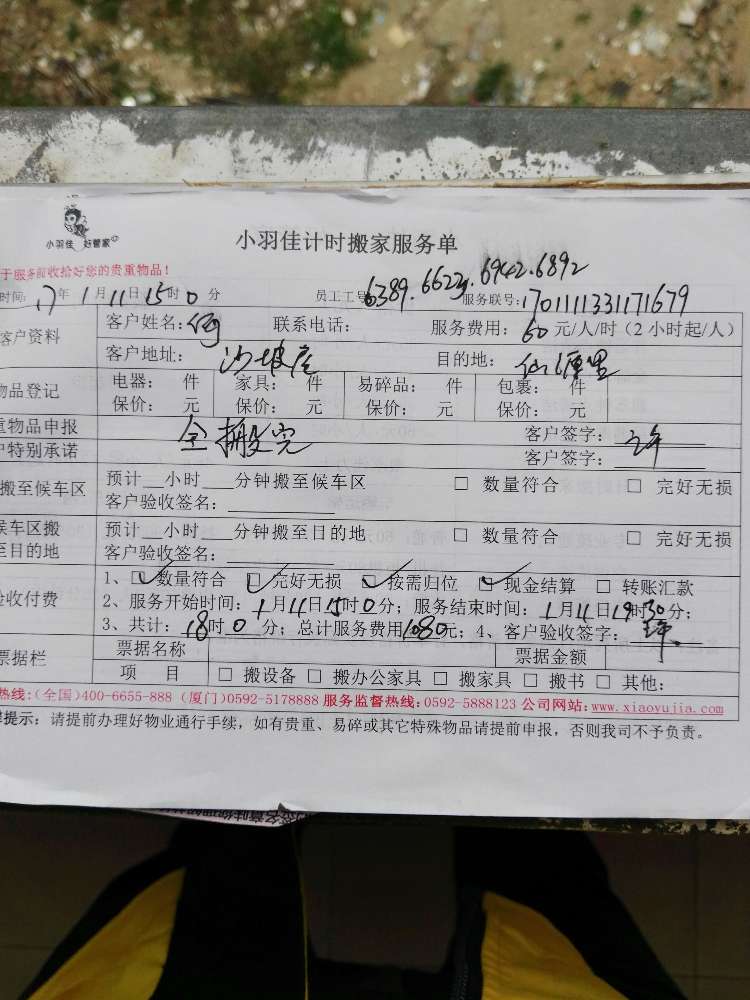 小羽佳 好管家
小羽佳计时搬家服务单
于服务前收拾好您的贵重物品！
时间：17年1月11日15时0分 员工工号6389.6623.6942.6892 服务联号：1701111331171679
客户资料 客户姓名：何 联系电话： 服务费用：60元/人/时（2小时起/人）
客户地址：沙坡尾 目的地：
物品登记 电器： 件 家具： 件 易碎品： 件 包裹： 件
保价： 元 保价： 元 保价： 元 保价： 元
重物品申报 全搬完 客户签字：
户特别承诺 客户签字：
搬至候车区 预计__小时__分钟搬至候车区 □ 数量符合 □ 完好无损
客户验收签名：
候车区搬 预计__小时__分钟搬至目的地 □ 数量符合 □ 完好无损
至目的地 客户验收签名：
验收付费 1、☑数量符合 ☑完好无损 ☑按需归位 ☑现金结算 □ 转账汇款
2、服务开始时间：1月11日15时0分；服务结束时间：1月11日19时30分；
3、共计：18时0分；总计服务费用1080元；4、客户验收签字：
票据栏 票据名称 票据金额
项 目 □ 搬设备 □ 搬办公家具 □ 搬家具 □ 搬书 □ 其他：
热线：(全国)400-6655-888 (厦门)0592-5178888 服务监督热线：0592-5888123 公司网站：www.xiaoyujia.com
提示：请提前办理好物业通行手续，如有贵重、易碎或其它特殊物品请提前申报，否则我司不予负责。